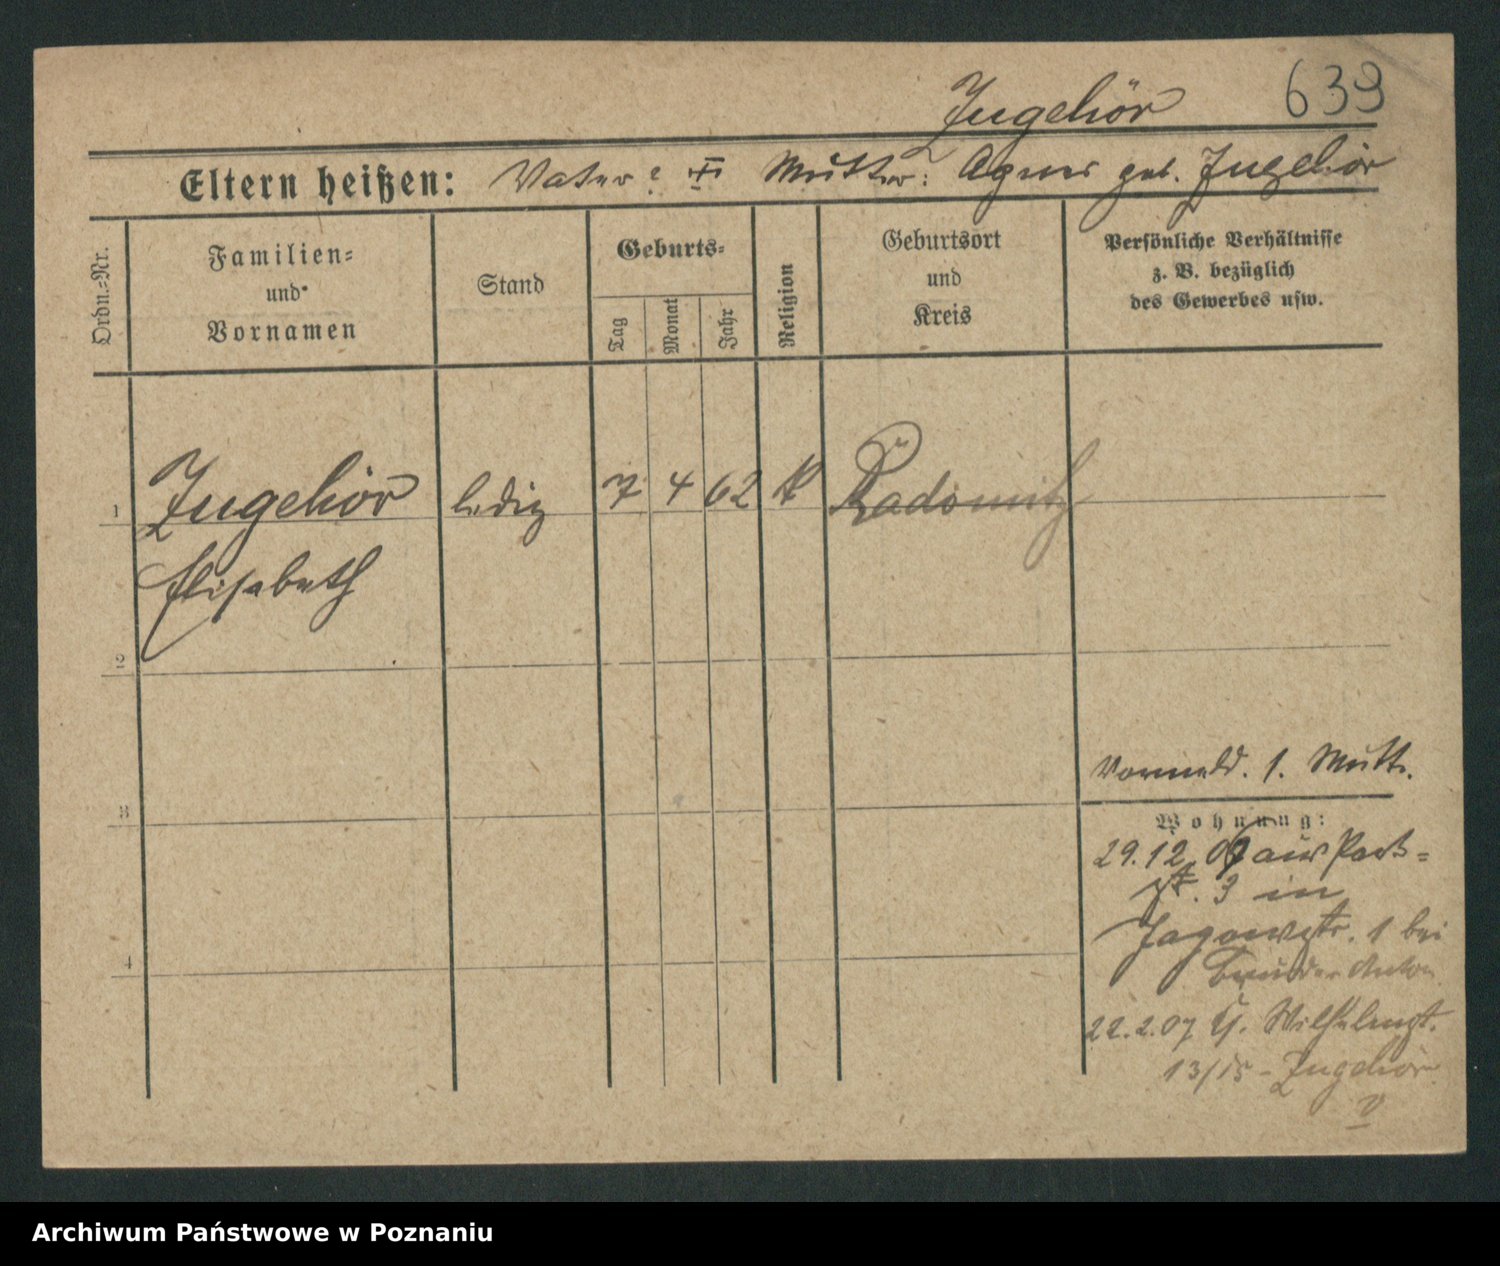 Zugehör 639
Eltern heißen: Vater? Mutter: Agnes geb. Zugehör
Ordn.-Nr.
Familien-
und
Vornamen
Stand
Geburts-
Tag
Monat
Jahr
Religion
Geburtsort
und
Kreis
Persönliche Verhältnisse
z. B. bezüglich
des Gewerbes usw.
1 Zugehör ledig 7 4 62 k Radomitz
Elisabeth
2
3
4
1. Mutt.
Wohnung:
29.12.06 aus Park=
st. 3 in
Jagowstr. 1 bei
Bruder Anton
22.2.07 Wilhelmst.
13/15 - Zugehör
v
Archiwum Państwowe w Poznaniu